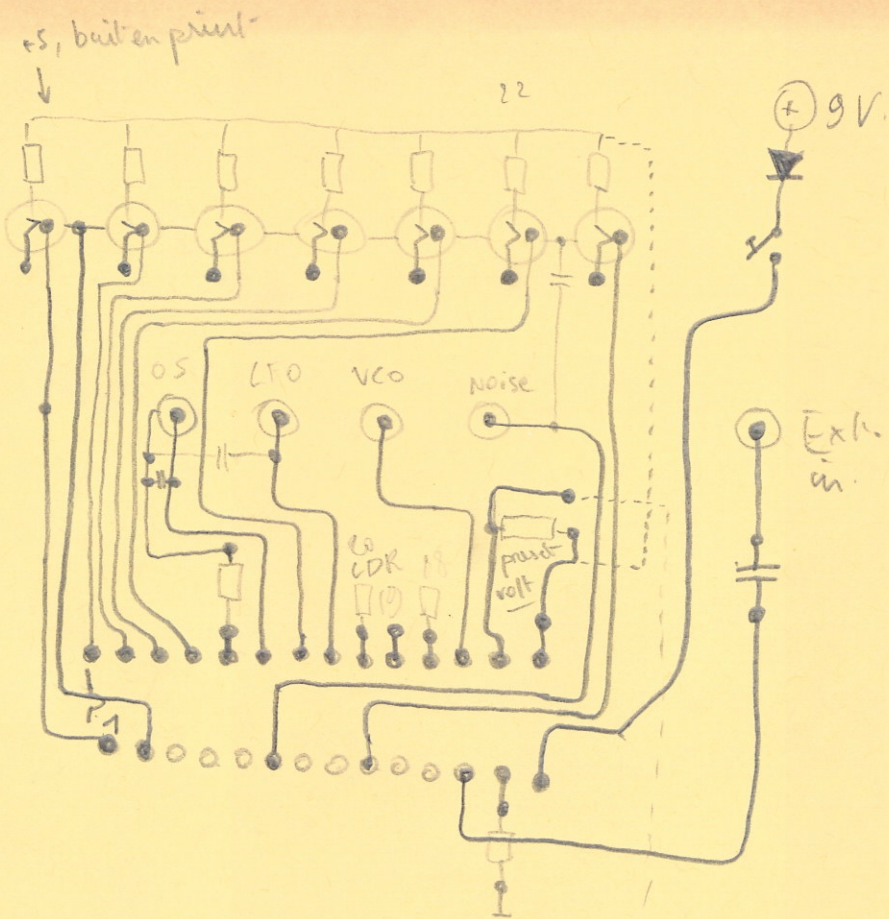 +5, buiten print
22
+ 9V.
OS LFO VCO Noise
Ext.
in.
20
LDR 19 18
preset
volt
1